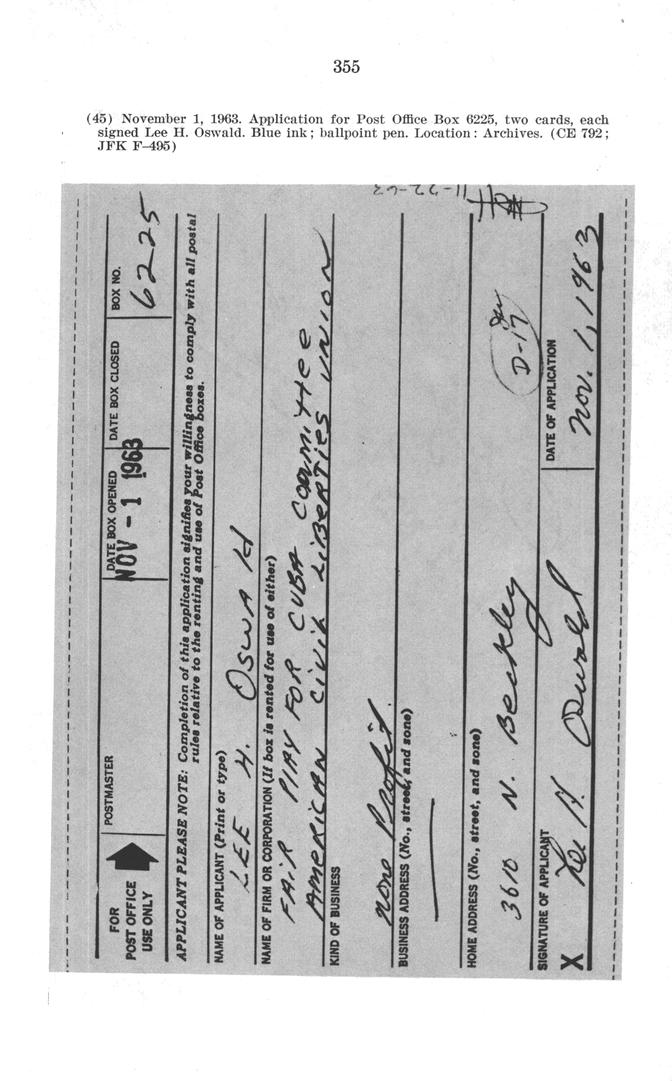 355
(45) November 1, 1963. Application for Post Office Box 6225, two cards, each
signed Lee H. Oswald. Blue ink; ballpoint pen. Location: Archives. (CE 792;
JFK F–495)
11-22-63
FOR
POST OFFICE
USE ONLY
POSTMASTER
DATE BOX OPENED
NOV - 1 1963
DATE BOX CLOSED
BOX NO.
6225
APPLICANT PLEASE NOTE: Completion of this application signifies your willingness to comply with all postal
rules relative to the renting and use of Post Office boxes.
NAME OF APPLICANT (Print or type)
LEE H. OSWALd
NAME OF FIRM OR CORPORATION (If box is rented for use of either)
FAiR PlAY FOR CUBA COMMiTTee
AMERiCAN CiViL LiBERTiES UNiON
KIND OF BUSINESS
none Profit
BUSINESS ADDRESS (No., street, and zone)
HOME ADDRESS (No., street, and zone)
3610 N. Beckley
D-17
SIGNATURE OF APPLICANT
X Lee H. Oswald
DATE OF APPLICATION
Nov. 1, 1963